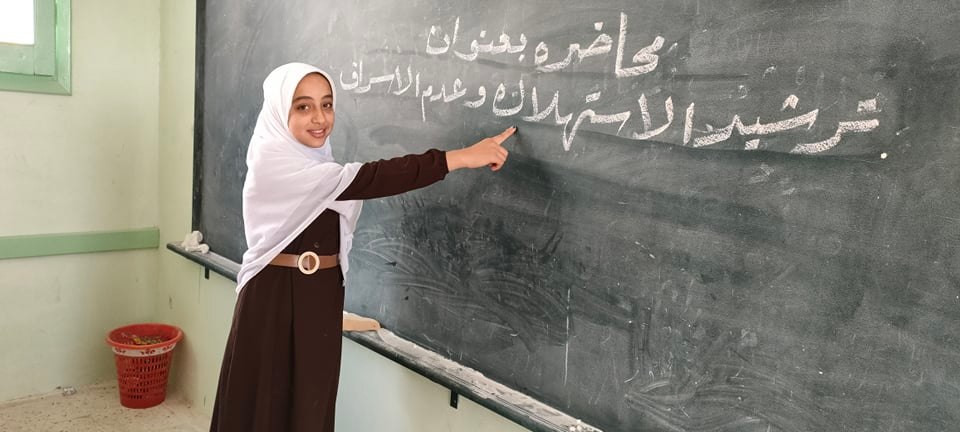 محاضره بعنوان
ترشيد الاستهلاك وعدم الاسراف